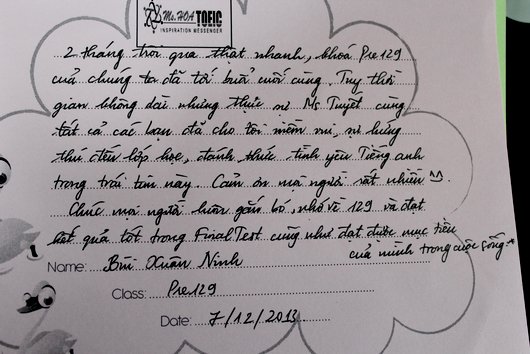 Ms.HOA TOEIC
INSPIRATION MESSENGER
2 tháng trôi qua thật nhanh, khoá Pre129
của chúng ta đã tới buổi cuối cùng. Tuy thời
gian không dài nhưng thực sự Ms Tuyết cùng
tất cả các bạn đã cho tôi niềm vui, sự hứng
thú đến lớp học, đánh thức tình yêu Tiếng anh
trong trái tim này. Cảm ơn mọi người rất nhiều
Chúc mọi người luôn gắn bó, nhớ về 129 và đạt
kết quả tốt trong Final Test cũng như đạt được mục tiêu
của mình trong cuộc sống
Name: Bùi Xuân Ninh
Class: Pre129
Date: 7/12/2013